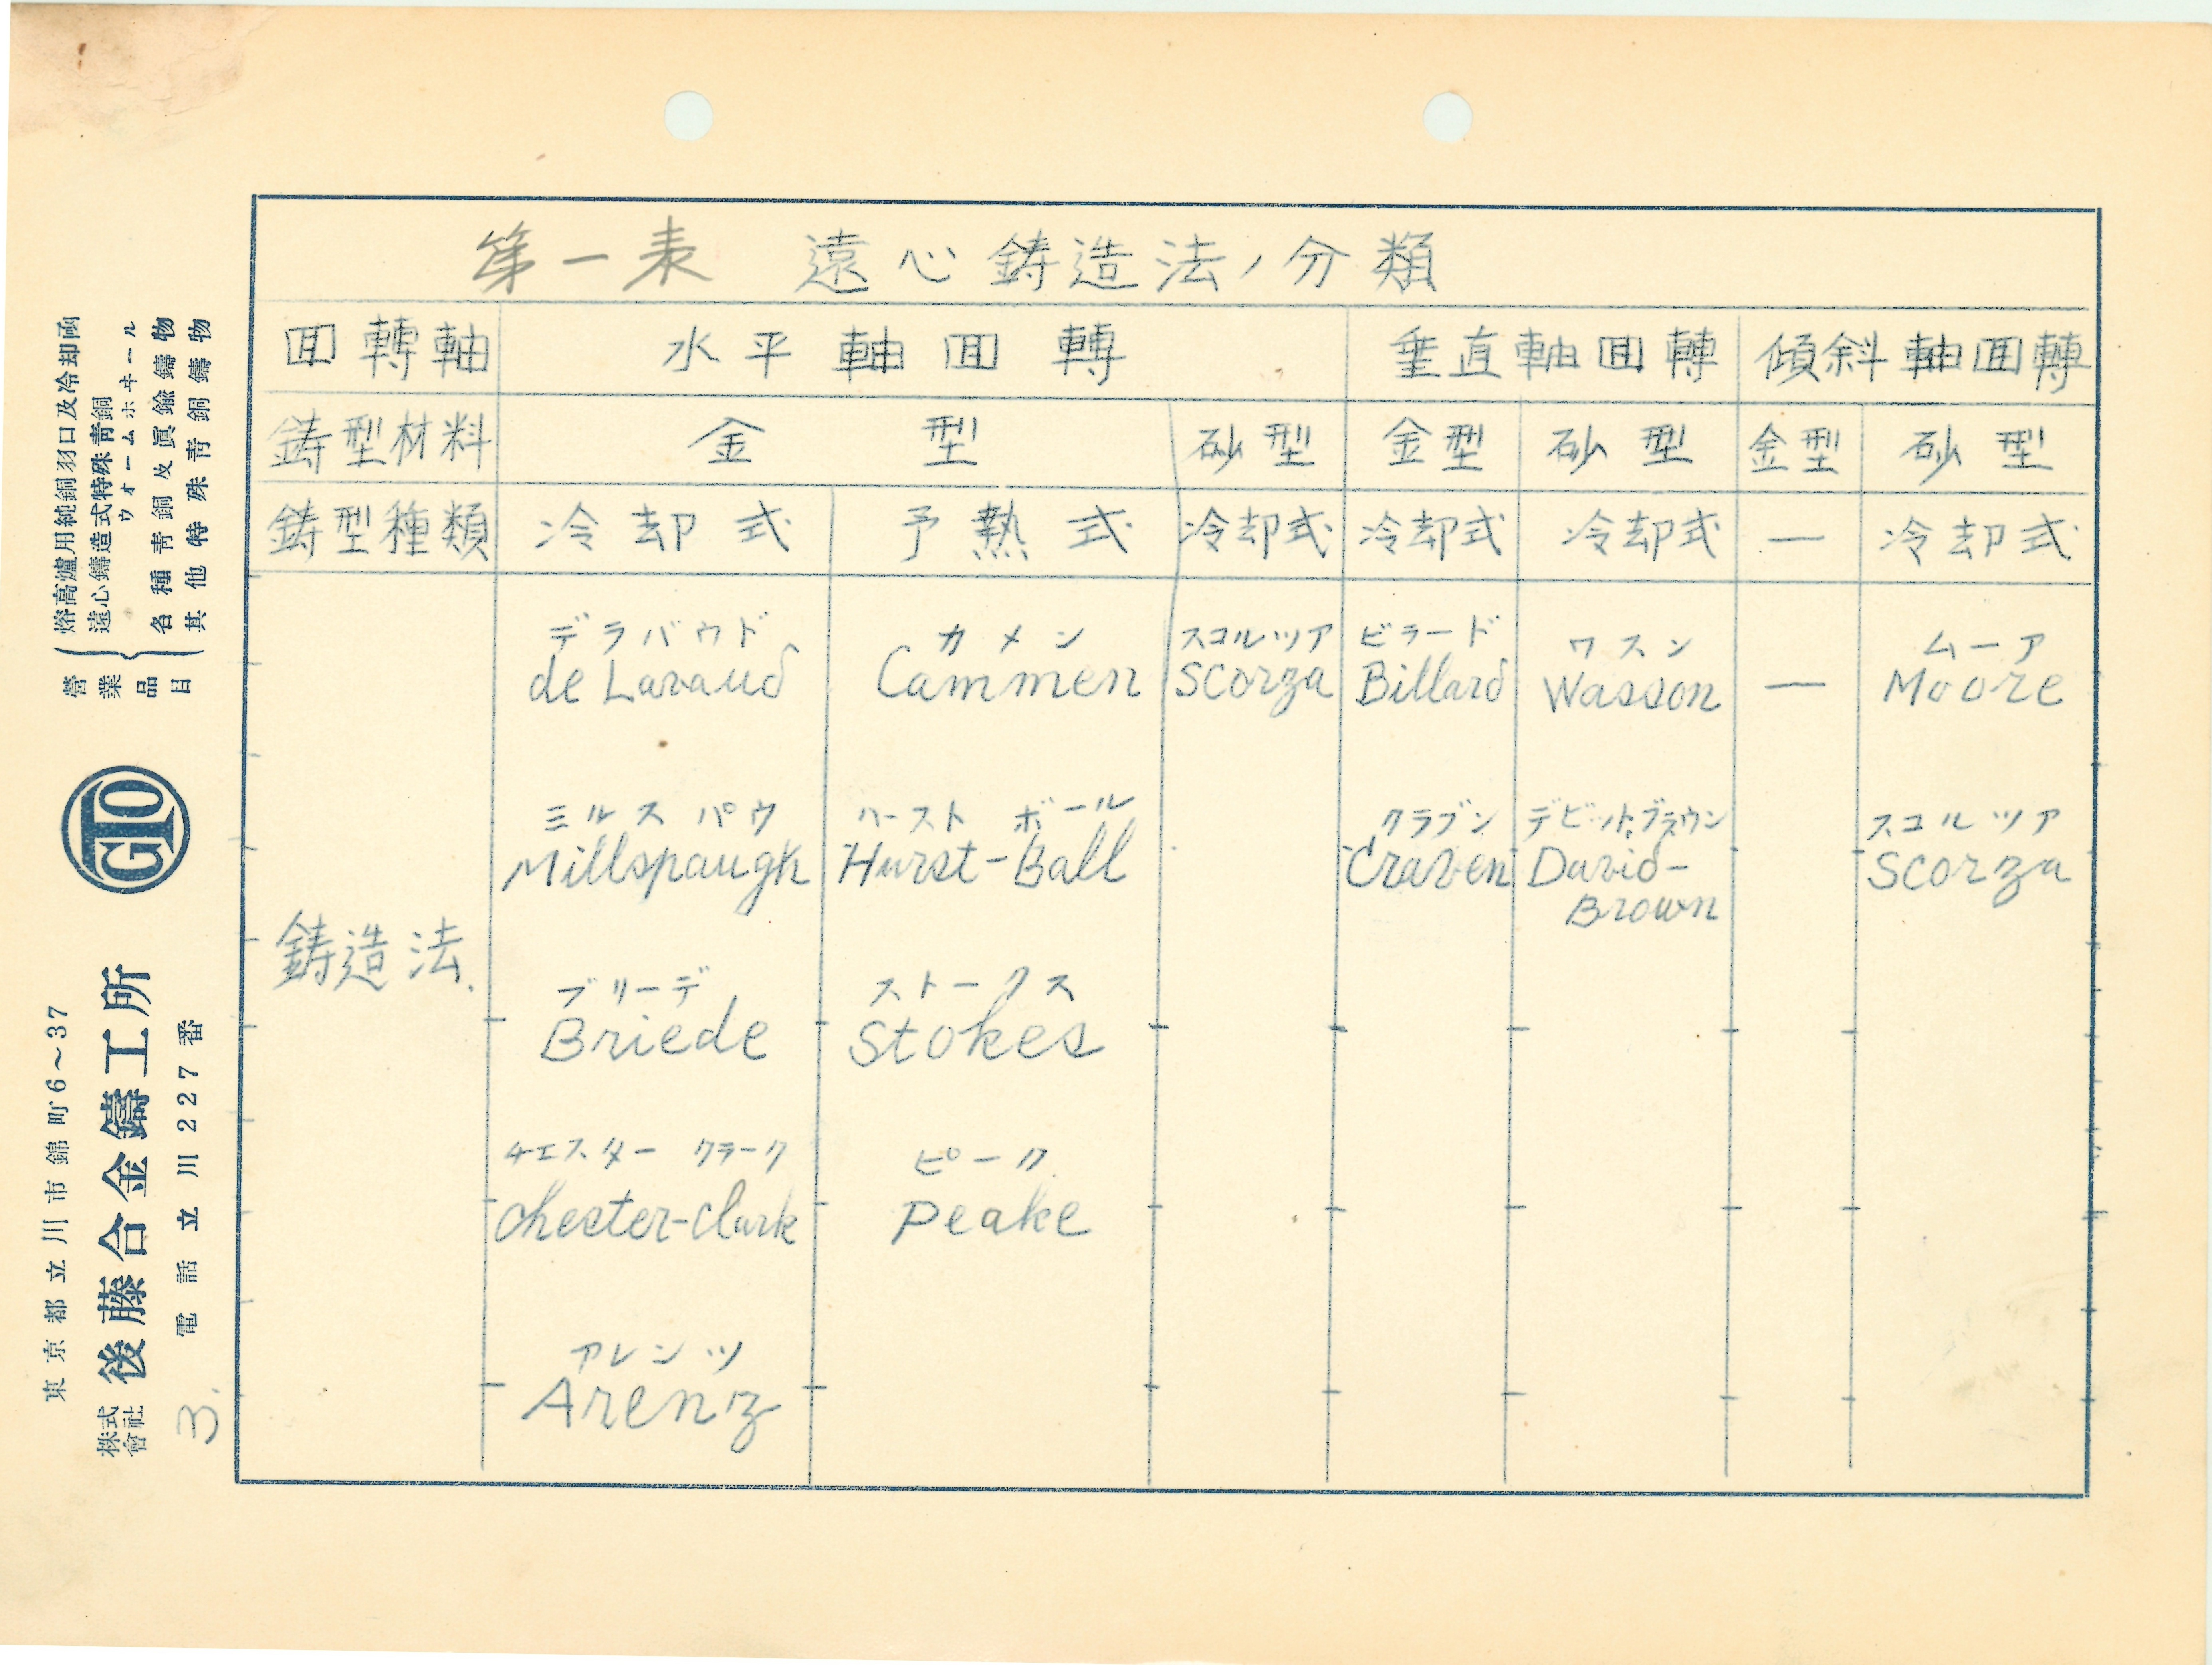 第一表 遠心鋳造法ノ分類
回轉軸 水平軸回轉 垂直軸回轉 傾斜軸回轉
鋳型材料 金型 砂型 金型 砂型 金型 砂型
鋳型種類 冷却式 予熱式 冷却式 冷却式 冷却式 — 冷却式
デラバウド カメン スコルツア ビラード ワスン ムーア
de Lavaud Cammen Scorza Billard Wasson — Moore
ミルスパウ ハースト ボール クラブン デビットブラウン スコルツア
Millspaugh Hurst-Ball Craven David- Scorza
Brown
鋳造法
ブリーデ ストークス
Briede Stokes
チエスター クラーク ピーク
Chester-Clark Peake
アレンツ
Arenz
營業品目
熔高爐用純銅羽口及冷却函
遠心鑄造式特殊青銅
ウオームホヰール
各種青銅及眞鍮鑄物
其他特殊青銅鑄物
GTO
東京都立川市錦町6~37
株式會社 後藤合金鑄工所
電話 立川227番
3.